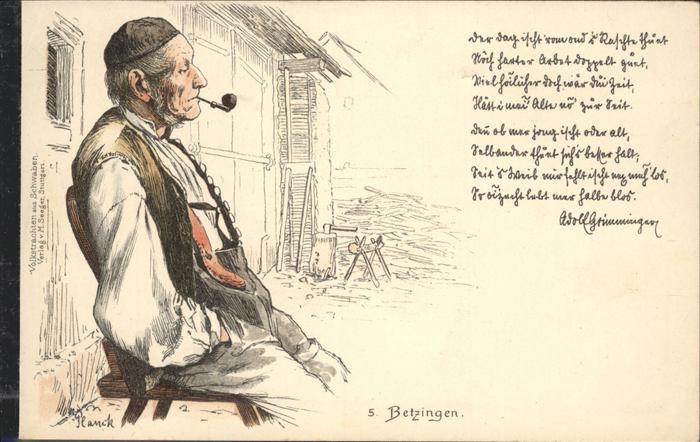 Der Dag ischt rom ond 's Raschte thuet
Noch harter Arbet doppelt guet,
Viel höilicher doch wär dui Zeit,
Hätt i mei' Alte no' zur Seit.
Denn ob mer jong ischt oder alt,
Selbander thuet sich's besser halt;
Seit 's Weib mir fehlt ischt nex meh' los,
So oizecht lebt mer halbe blos.
Adolf Grimminger
Volkstrachten aus Schwaben.
Verlag v. M. Seeger, Stuttgart
5. Betzingen.
Planck